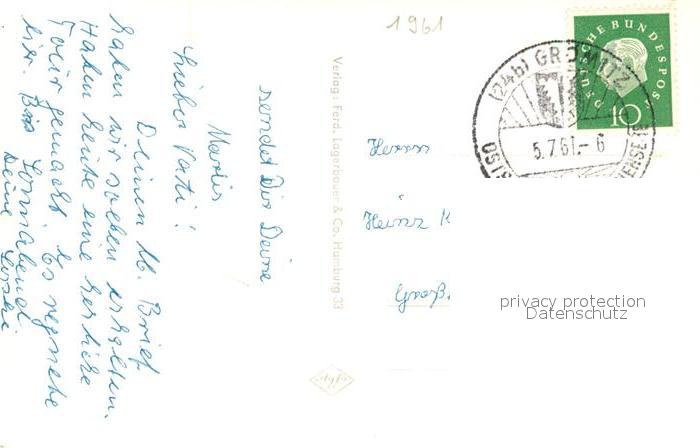 1961
Lieber Vati!
Deinen lb. Brief
haben wir soeben erhalten.
Haben heute eine herrliche
Tour gemacht. Es regnete
Bis Sonnabend.
Deine
sendet Dir Deine
Verlag: Ferd. Lagerbauer & Co. Hamburg 33
Herrn
Heinz K
Groß.
(24b) GRÖMITZ
5.7.61.-6
DEUTSCHE BUNDESPOST
10
privacy protection
Datenschutz